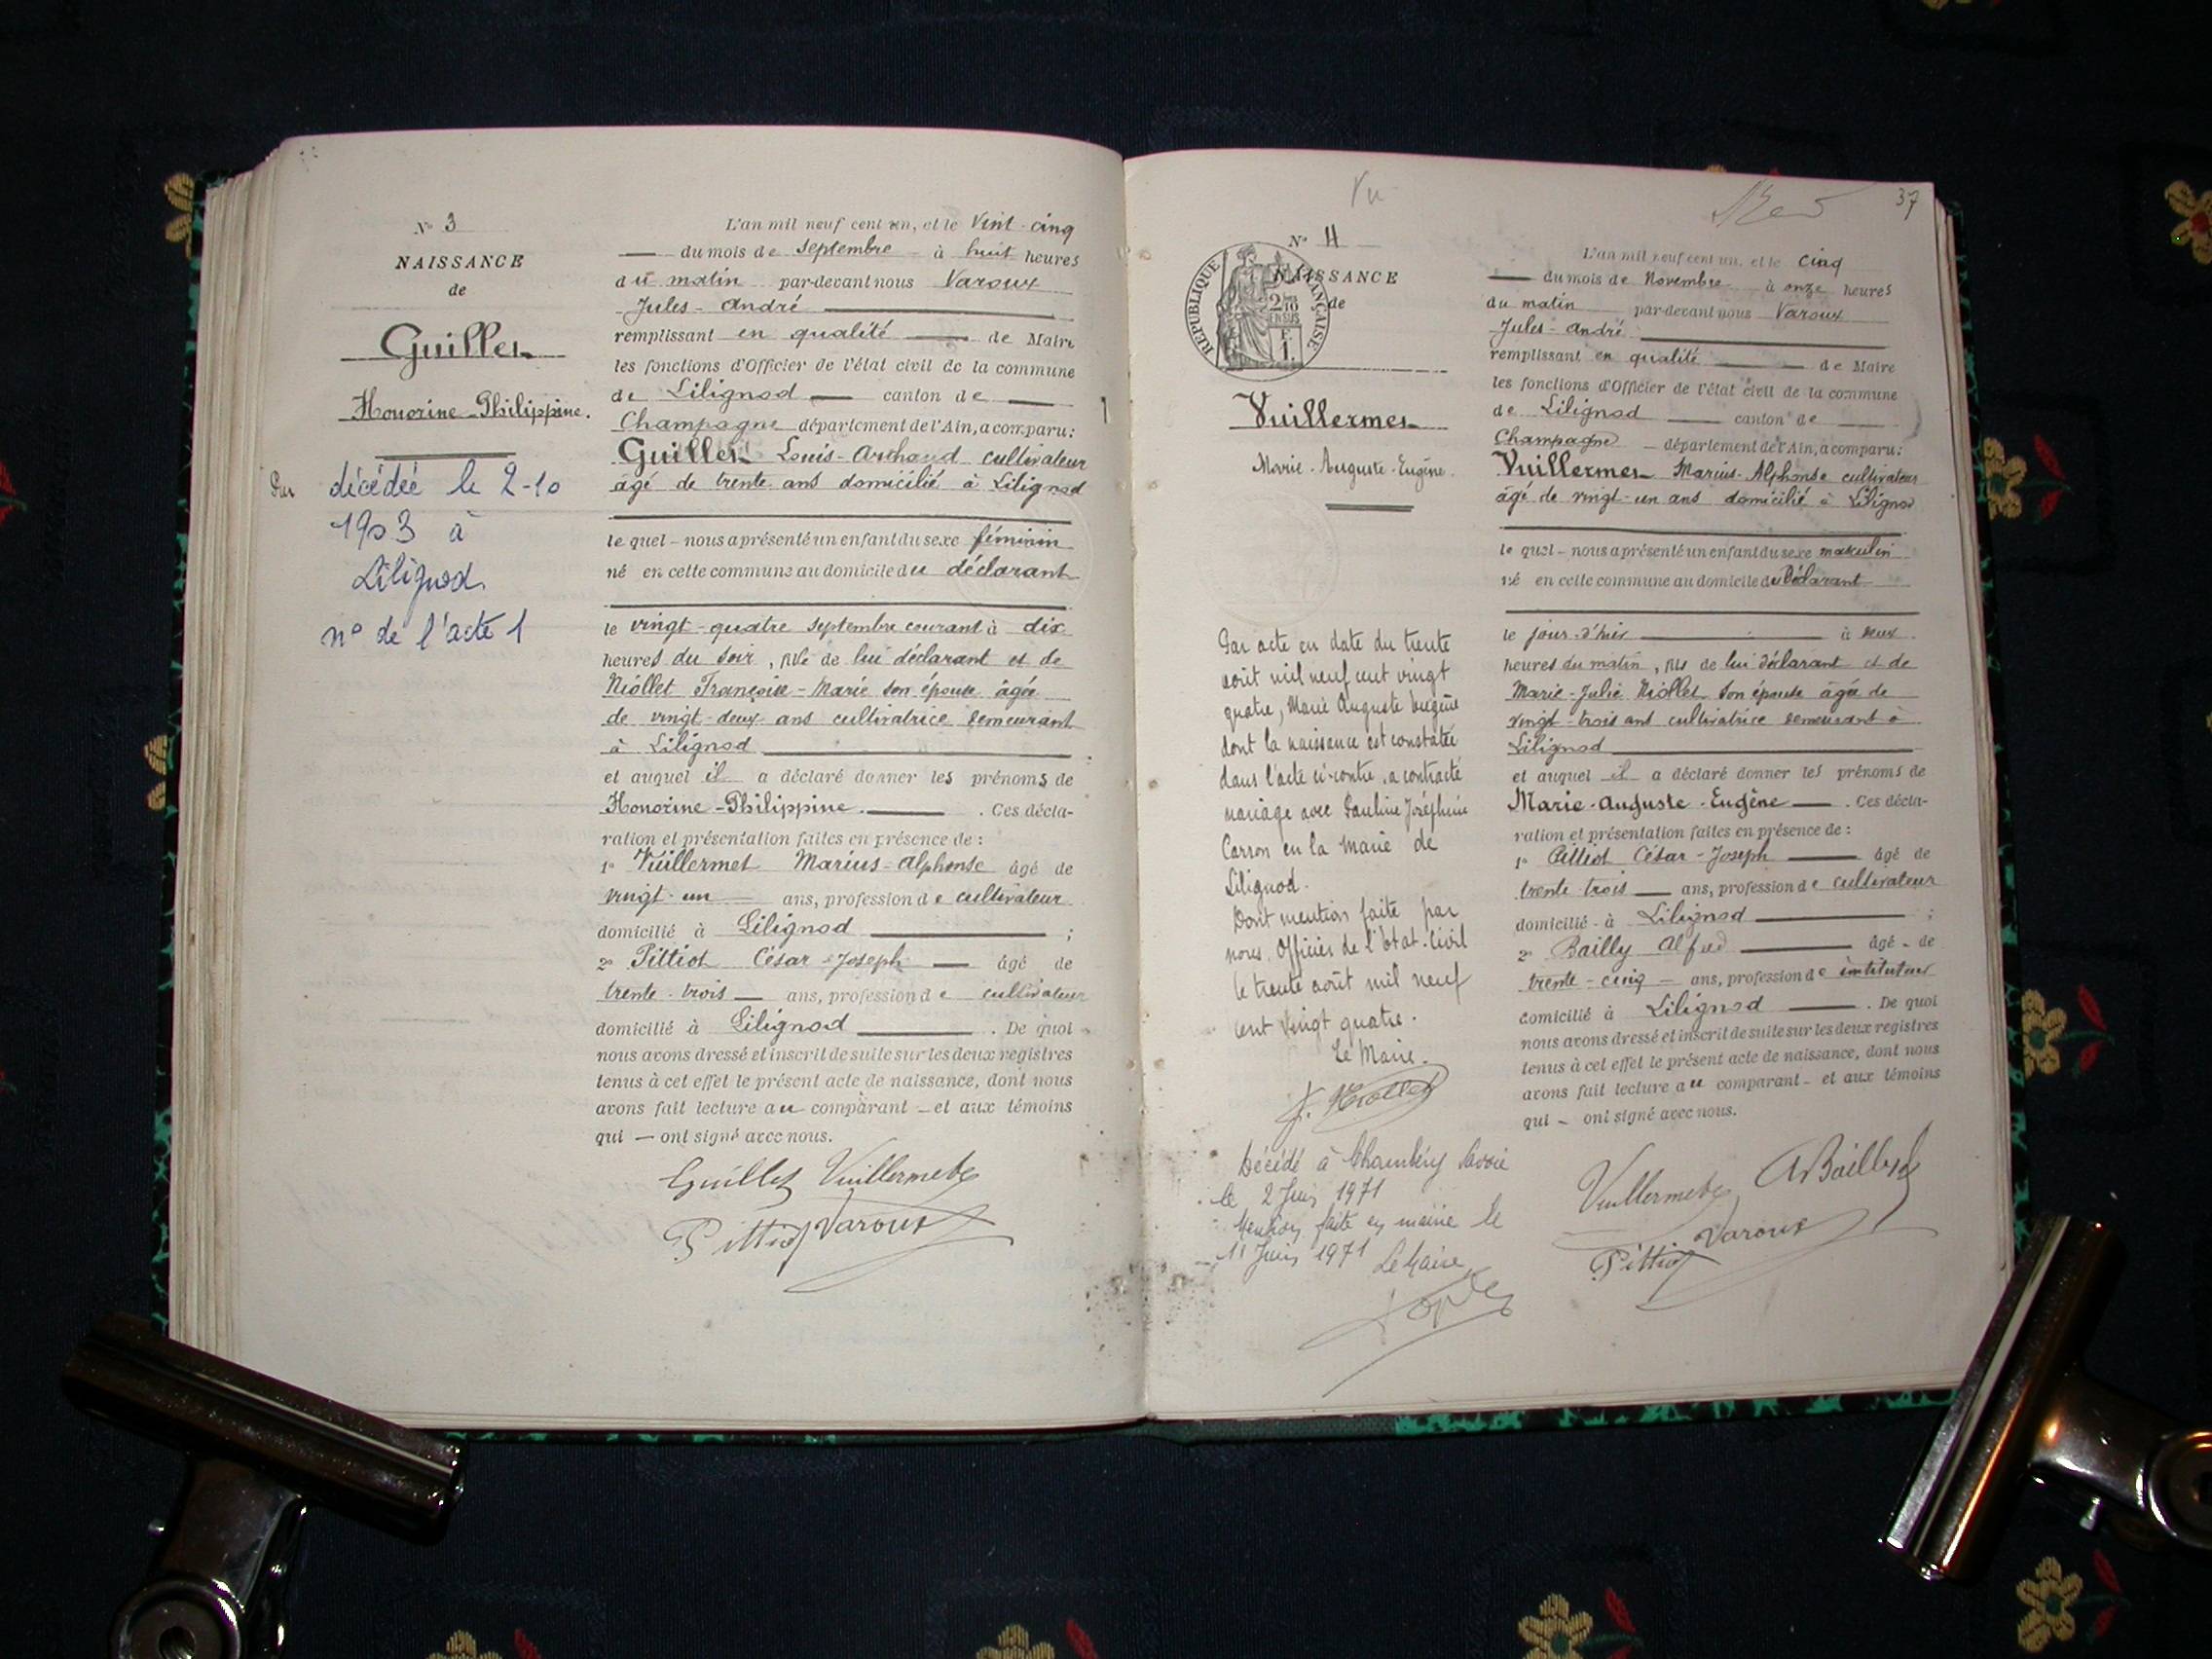 N° 3
NAISSANCE
de
Guillet
Honorine-Philippine.
décédée le 2-10
1903 à
Lilignod
n° de l'acte 1
L'an mil neuf cent un, et le Vint-cinq
du mois de Septembre à huit heures
du matin par-devant nous Varoux
Jules-André
remplissant en qualité de Maire
les fonctions d'Officier de l'état civil de la commune
de Lilignod canton de
Champagne département de l'Ain, a comparu:
Guillet Louis-Arthaud cultivateur
âgé de trente ans domicilié à Lilignod
le quel nous a présenté un enfant du sexe féminin
né en cette commune au domicile du déclarant
le vingt-quatre septembre courant à dix
heures du soir, fille de lui déclarant et de
Niollet Françoise-Marie son épouse âgée
de vingt-deux ans cultivatrice demeurant
à Lilignod
et auquel il a déclaré donner les prénoms de
Honorine-Philippine. Ces décla-
ration et présentation faites en présence de:
1° Vuillermet Marius-Alphonse âgé de
vingt-un ans, profession de cultivateur
domicilié à Lilignod ;
2° Pittiot César-Joseph âgé de
trente-trois ans, profession de cultivateur
domicilié à Lilignod. De quoi
nous avons dressé et inscrit de suite sur les deux registres
tenus à cet effet le présent acte de naissance, dont nous
avons fait lecture au comparant et aux témoins
qui ont signé avec nous.
Guillet Vuillermet
Pittiot Varoux
Vu
37
N° 4
RÉPUBLIQUE FRANÇAISE
2/10
EN SUS
F.
1.
NAISSANCE
de
Vuillermet
Marie-Auguste-Eugène.
Par acte en date du trente
août mil neuf cent vingt
quatre, Marie Auguste Eugène
dont la naissance est constatée
dans l'acte ci-contre, a contracté
mariage avec Pauline Joséphine
Carron en la Mairie de
Lilignod.
Dont mention faite par
nous, Officier de l'Etat-Civil
le trente août mil neuf
cent vingt quatre.
Le Maire.
Décédé à Chambéry Savoie
le 2 Juin 1971
Mention faite en mairie le
11 Juin 1971 Le Maire
L'an mil neuf cent un, et le cinq
du mois de Novembre à onze heures
du matin par-devant nous Varoux
Jules-André
remplissant en qualité de Maire
les fonctions d'Officier de l'état civil de la commune
de Lilignod canton de
Champagne département de l'Ain, a comparu:
Vuillermet Marius-Alphonse cultivateur
âgé de vingt-un ans domicilié à Lilignod
le quel nous a présenté un enfant du sexe masculin
né en cette commune au domicile du Déclarant
le jour-d'hui à deux
heures du matin, fils de lui déclarant et de
Marie-Julie Niollet son épouse âgée de
vingt-trois ans cultivatrice demeurant à
Lilignod
et auquel il a déclaré donner les prénoms de
Marie-Auguste-Eugène. Ces décla-
ration et présentation faites en présence de:
1° Pittiot César-Joseph âgé de
trente-trois ans, profession de cultivateur
domicilié à Lilignod ;
2° Bailly Alfred âgé de
trente-cinq ans, profession de instituteur
domicilié à Lilignod. De quoi
nous avons dressé et inscrit de suite sur les deux registres
tenus à cet effet le présent acte de naissance, dont nous
avons fait lecture au comparant et aux témoins
qui ont signé avec nous.
Vuillermet ABailly
Varoux
Pittiot